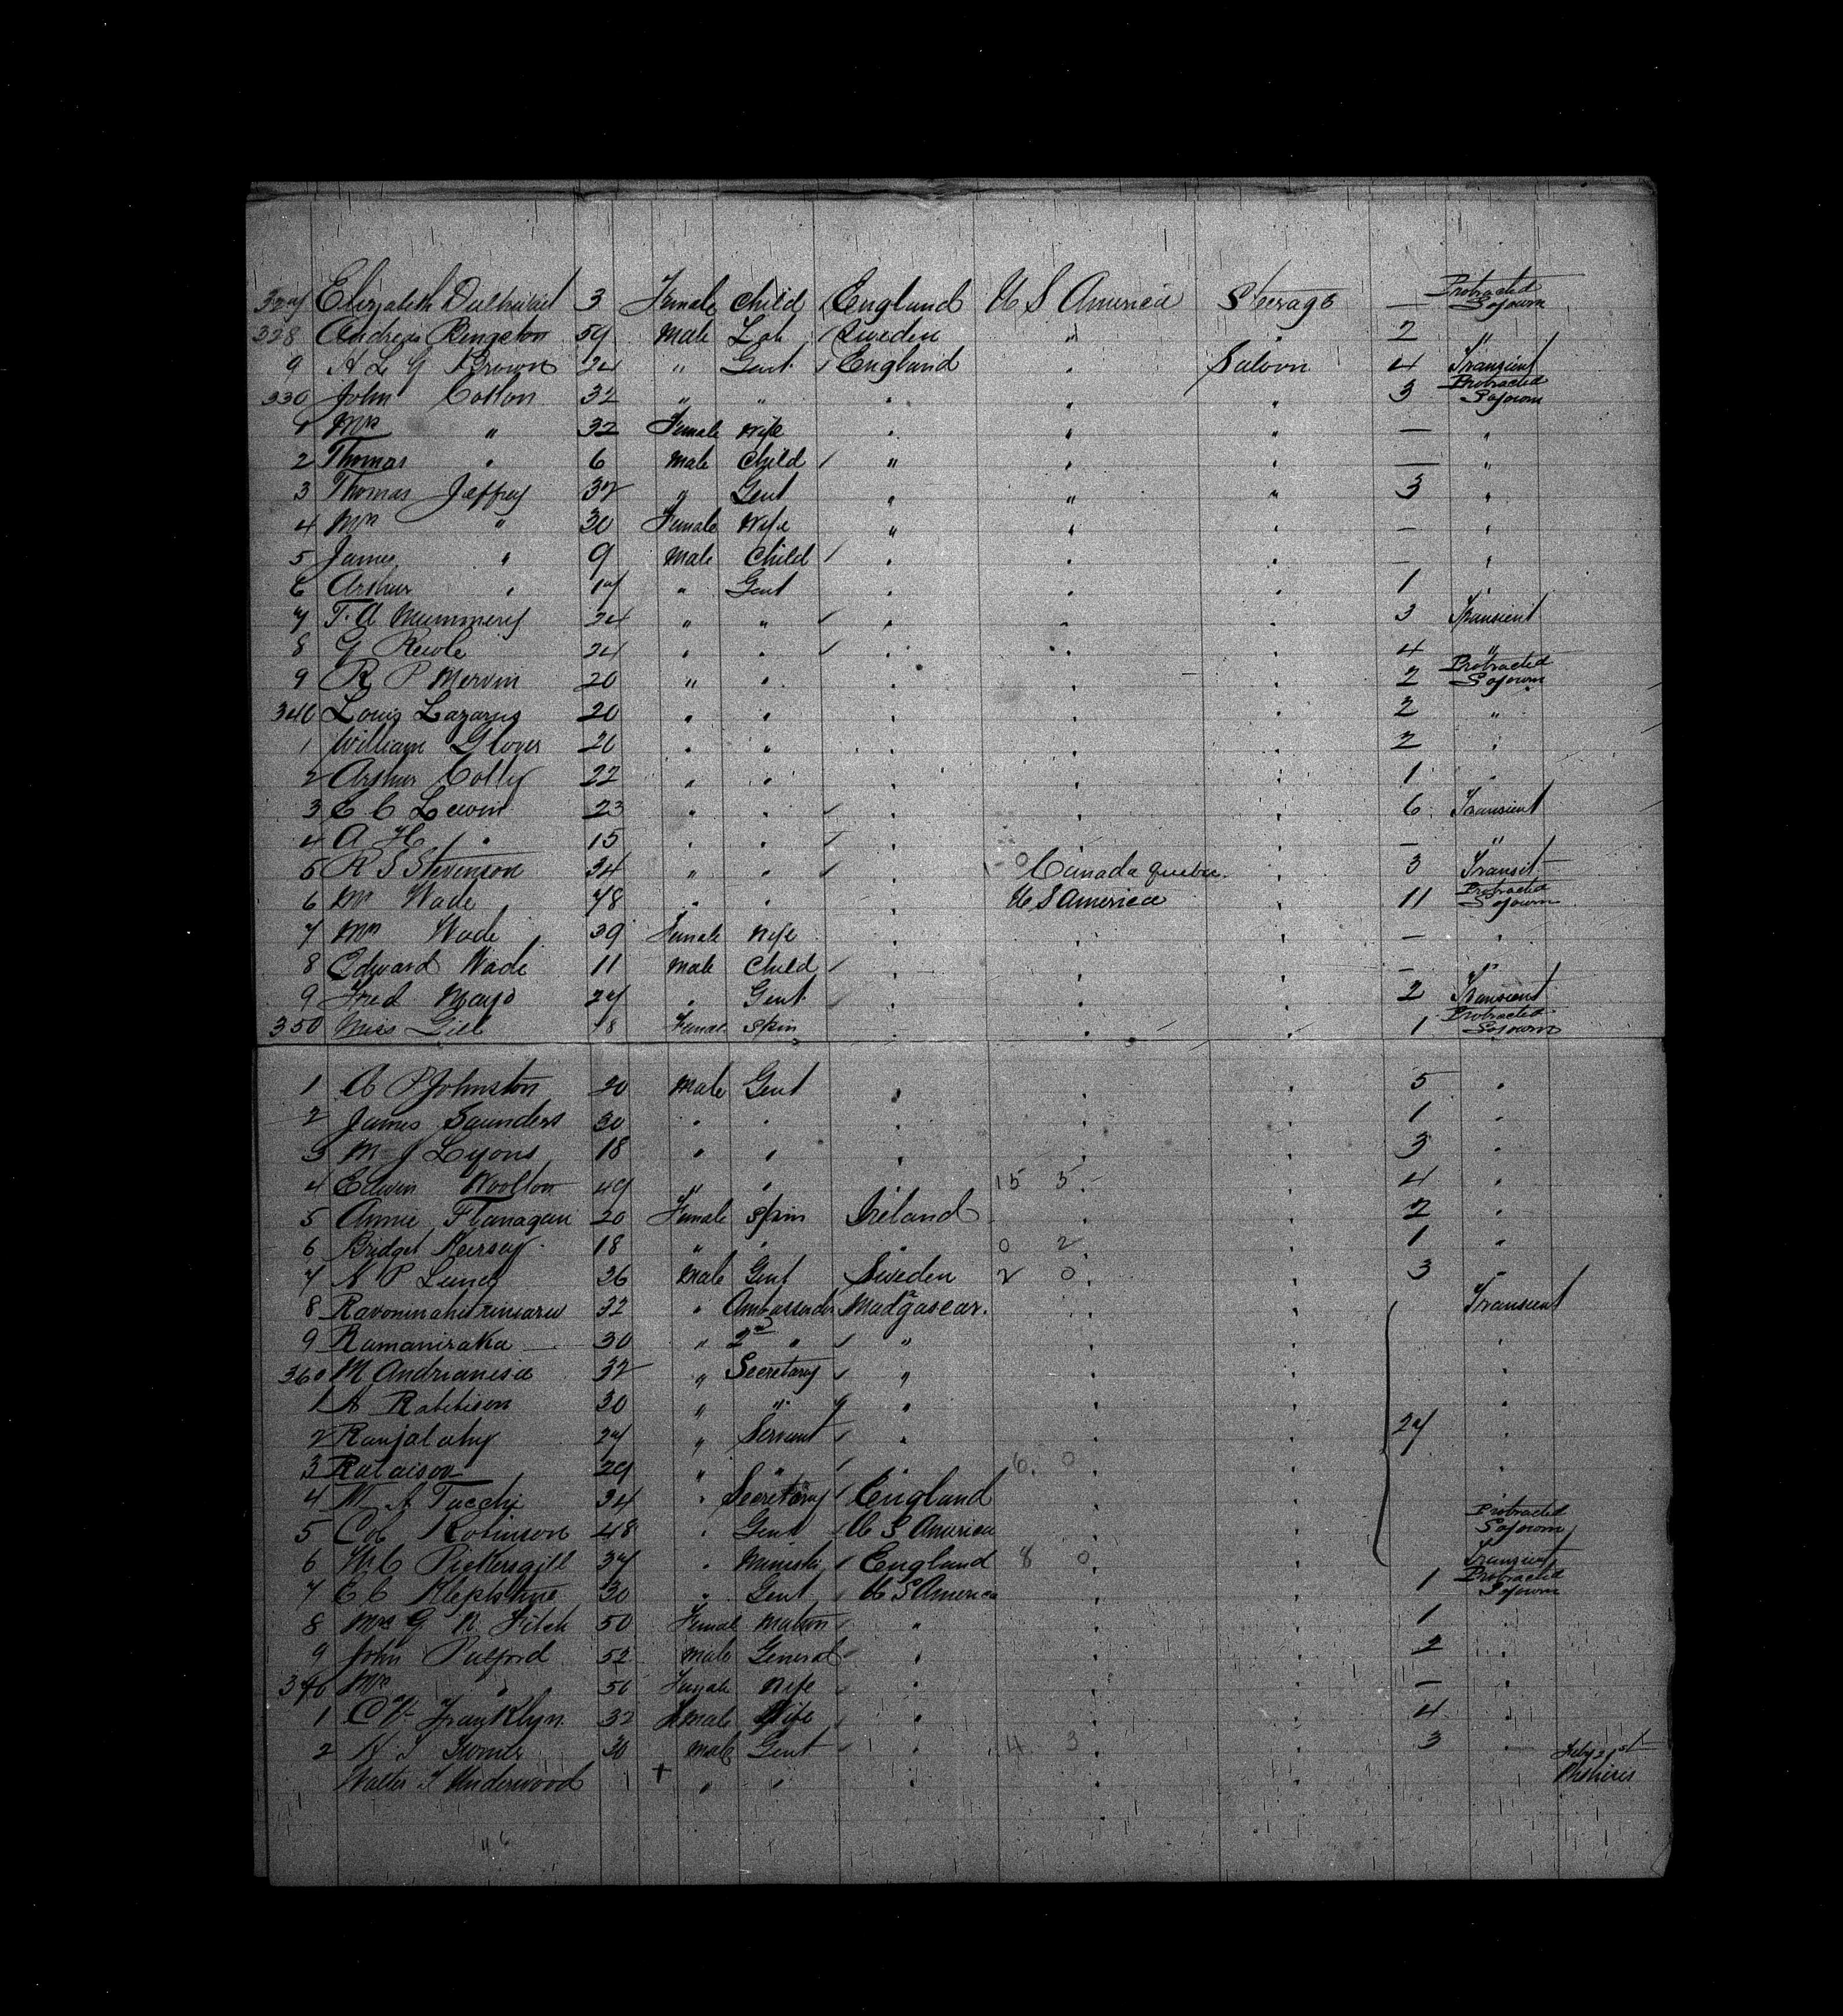 327 Elizabeth 3 Female Child England U S America Steerage — Protracted Sojourn
328 Andreas Bengston 59 Male Lab Sweden " " 2 "
9 A L G Brown 24 " Gent England " Saloon 4 Transient
330 John Cotton 32 " " " " " 3 Protracted Sojourn
1 Mrs " 32 Female Wife " " " — "
2 Thomas " 6 Male Child " " " — "
3 Thomas Jeffrey 32 " Gent " " " 3 "
4 Mrs " 30 Female Wife " " " — "
5 James " 9 Male Child " " " — "
6 Arthur " 17 " Gent " " " 1 "
7 T. A Mummery 24 " " " " " 3 Transient
8 G 24 " " " " " 4 "
9 R P Mervin 20 " " " " " 2 Protracted Sojourn
340 Louis Lazarus 20 " " " " " 2 "
1 William Glover 26 " " " " " 2 "
2 Arthur Colly 22 " " " " " 1 "
3 C C Lewin 23 " " " " " 6 Transient
4 A H " 15 " " " " " — "
5 R S Stevenson 34 " " " Canada Quebec " 3 Transit
6 Mr Wade 48 " " " U S America " 11 Protracted Sojourn
7 Mrs Wade 39 Female Wife " " " — "
8 Edward Wade 11 Male Child " " " — "
9 Fred Mayo 27 " Gent " " " 2 Transient
350 Miss Gill 18 Female Spin " " " 1 Protracted Sojourn
1 A P Johnston 20 Male Gent " " " 5 "
2 James Saunders 30 " " " " " 1 "
3 M J Lyons 18 " " " " " 3 "
4 Edwin Woolton 49 " " " 15 3 " 4 "
5 Annie Flanagan 20 Female Spin Ireland " " 2 "
6 Bridget Kersey 18 " " " 0 2 " 1 "
7 N P Lund 36 Male Gent Sweden 2 0 " 3 "
8 Ravoninahitriniarivo 32 " Ambassador Madagascar. " " Transient
9 Ramaniraka 30 " 2nd " " " " "
360 M Andrianisa 32 " Secretary " " " "
1 A Rabibison 30 " " " " " "
2 Ranjalahy 27 " Servant " " " 27 "
3 Ralaison 29 " " " 6. 0 " "
4 W A Tacchi 34 " Secretary England " "
5 Col Robinson 48 " Gent U S America " " Protracted Sojourn
6 W C Pickersgill 34 " Minister England 8 0 " Transient
7 C C 30 " Gent U S America " " 1 Protracted Sojourn
8 Mrs G N Fitch 50 Female Matron " " " 1 "
9 John Pulford 52 Male General " " " 2 "
370 Mrs " 50 Female Wife " " " — "
1 C V Franklyn 32 Female Wife " " " 4 "
2 30 Male Gent " 4 3 " 3 " July 21st
Walter T Underwood + " " " " "